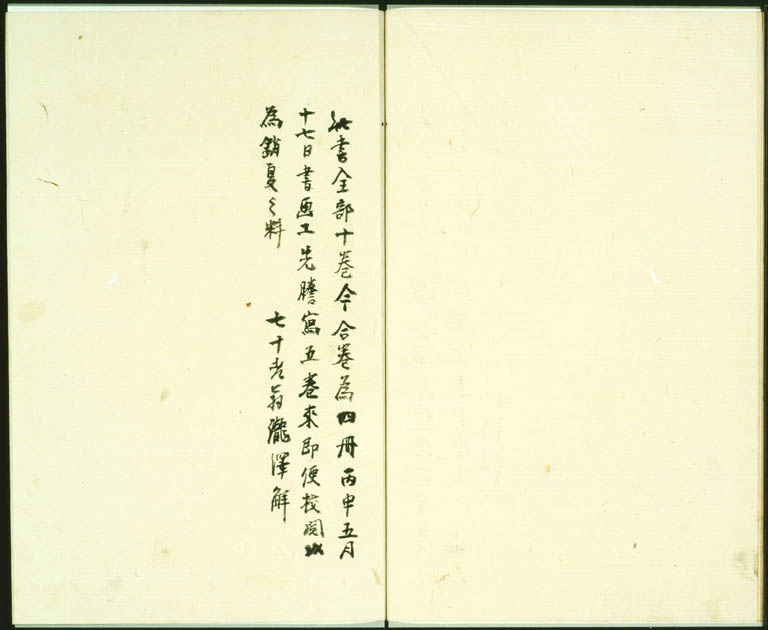 此書全部十巻今合巻為四冊丙申五月
十七日書画工先謄寫五巻来即便校閲以
為銷夏之料
七十老翁瀧澤解